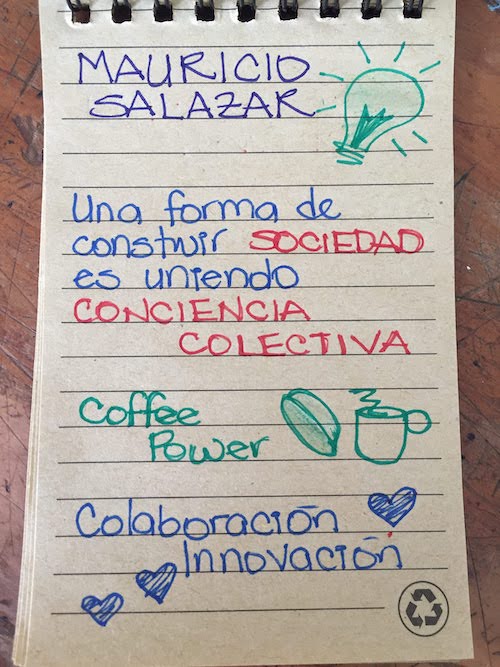 MAURICIO
SALAZAR
Una forma de
construir SOCIEDAD
es uniendo
CONCIENCIA
COLECTIVA
Coffee
Power
Colaboración
Innovación